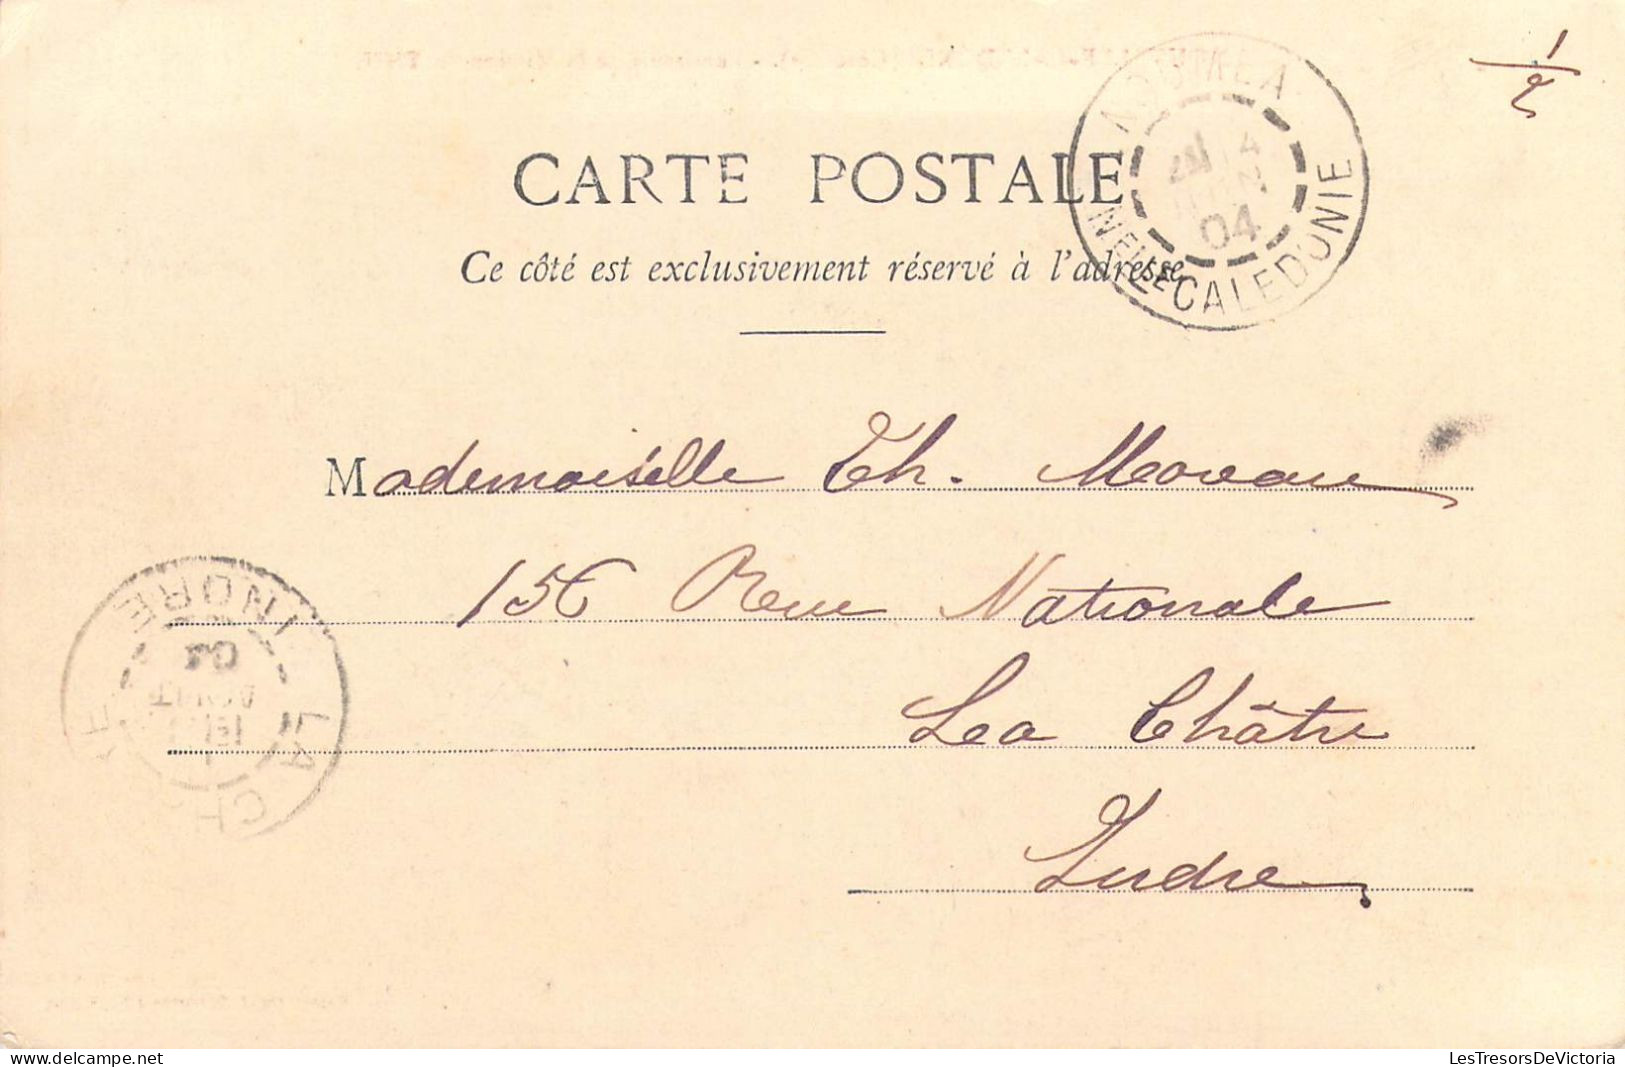 1/2
CARTE POSTALE
Ce côté est exclusivement réservé à l'adresse
NOUMEA
04
NELLE CALEDONIE
Mademoiselle Th. Moreau
156 Rue Nationale
La Châtre
Indre
LA CHATRE INDRE
1
AOUT
04
LesTresorsDeVictoria
delcampe.net